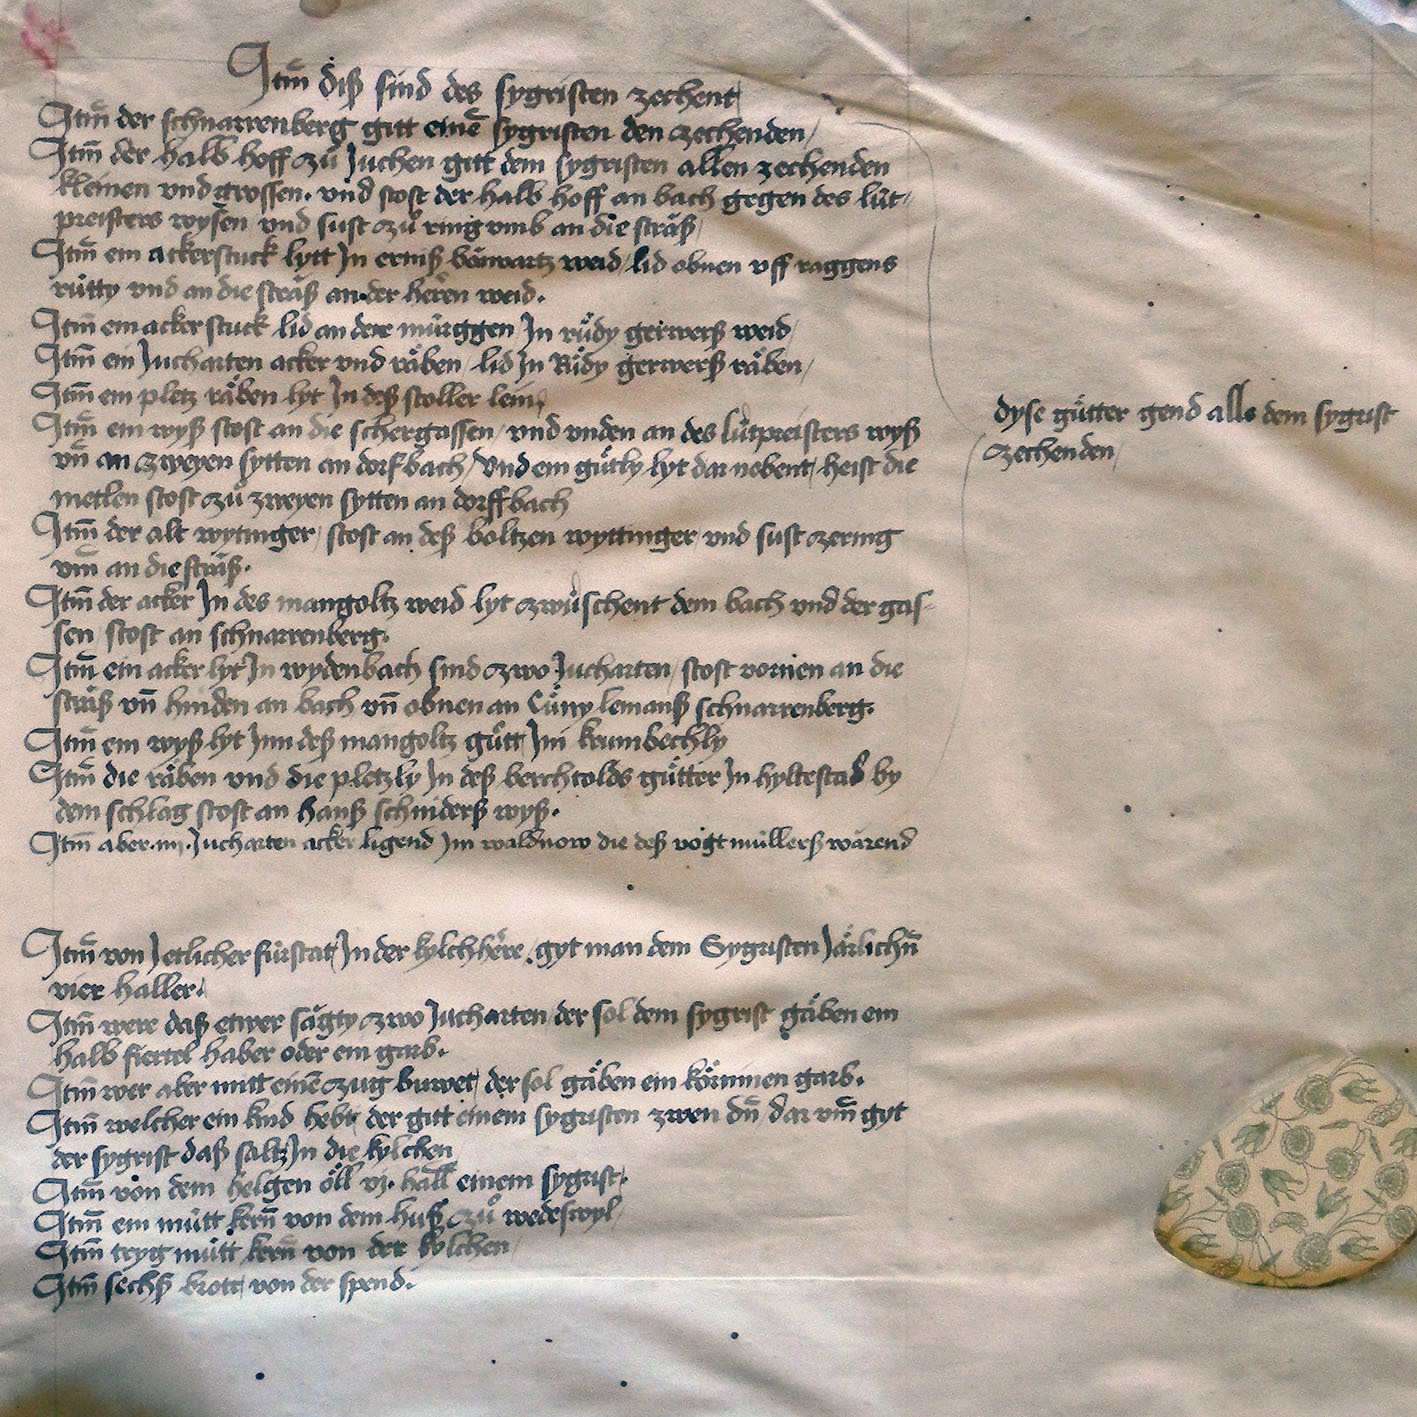 Itm̄ diß sind des sygristen zechent
Itm̄ der schnarrenberg gitt einē sygristen den zechenden /
Itm̄ der halb hoff zů Juchen gitt dem sygristen allen zechenden
kleinen vnd grossen. vnd stost der halb hoff an bach gegen des lüt-
preisters wysen vnd sust zů ring vmb an die sträß /
Itm̄ ein ackerstuck lytt Jn erniß weid / lid obnen vff raggens
rütty vnd an die sträß an der heren weid.
Itm̄ ein acker stuck lid an der müggen / Jn růdy gerwerß weid /
Itm̄ ein Jucharten acker vnd räben / lid Jn Růdy gerwerß räben /
Itm̄ ein pletz räben lyt Jn deß stoller lein /
Itm̄ ein wyß stost an die schergassen / vnd vnden an des lütpreisters wyß
vn̄ an zweyen sytten an dorfbach / Vnd ein gütly lyt dar nebent / heist die
metlen stost zů zweyen sytten an dorffbach
Itm̄ der alt wytinger / stost an deß boltzen wyttinger / vnd sust zering
vm̄ an die sträß.
Itm̄ der acker Jn des mangoltz weid lyt zwüschent dem bach vnd der gas-
sen / stost an schnarrenberg.
Itm̄ ein acker lyt Jn wydenbach sind zwo Jucharten / stost vornen an die
sträß vn̄ hinden an bach vn̄ obnen an Cůny lemanß schnarrenberg.
Itm̄ ein wyß lyt Jnn deß mangoltz gůtt Jm krumbechly
Itm̄ die räben vnd die pletzly Jn deß berchtolds gütter Jn hyltestad by
dem schlag stost an hanß schniderß wyß.
Itm̄ aber .iiij. Jucharten acker ligend Jm waldnow die deß vogt müllerß wärend
dyse gütter gend alle dem sygrist
zechenden /
Itm̄ von Jetlicher fürstat / Jn der kylchhere / gyt man dem Sygristen Järlichn̄
vier haller.
Itm̄ were daß etwer sägty zwo Jucharten der sol dem sygrist gäben ein
halb fiertel haber oder ein garb.
Itm̄ wer aber mitt einē zug buwet / der sol gäben ein körninen garb.
Itm̄ welcher ein kind hebt / der gitt einem sygristen zwen dn̄ / dar vm̄ gyt
der sygrist daß saltz Jn die kylchen
Itm̄ von dem helgen öll vj. hall einem sygrist.
Itm̄ ein mütt kern̄ von dem huß zů wedeswyl /
Itm̄ tryg mütt kern̄ von der kylchen /
Itm̄ sechß brott / von der spend.